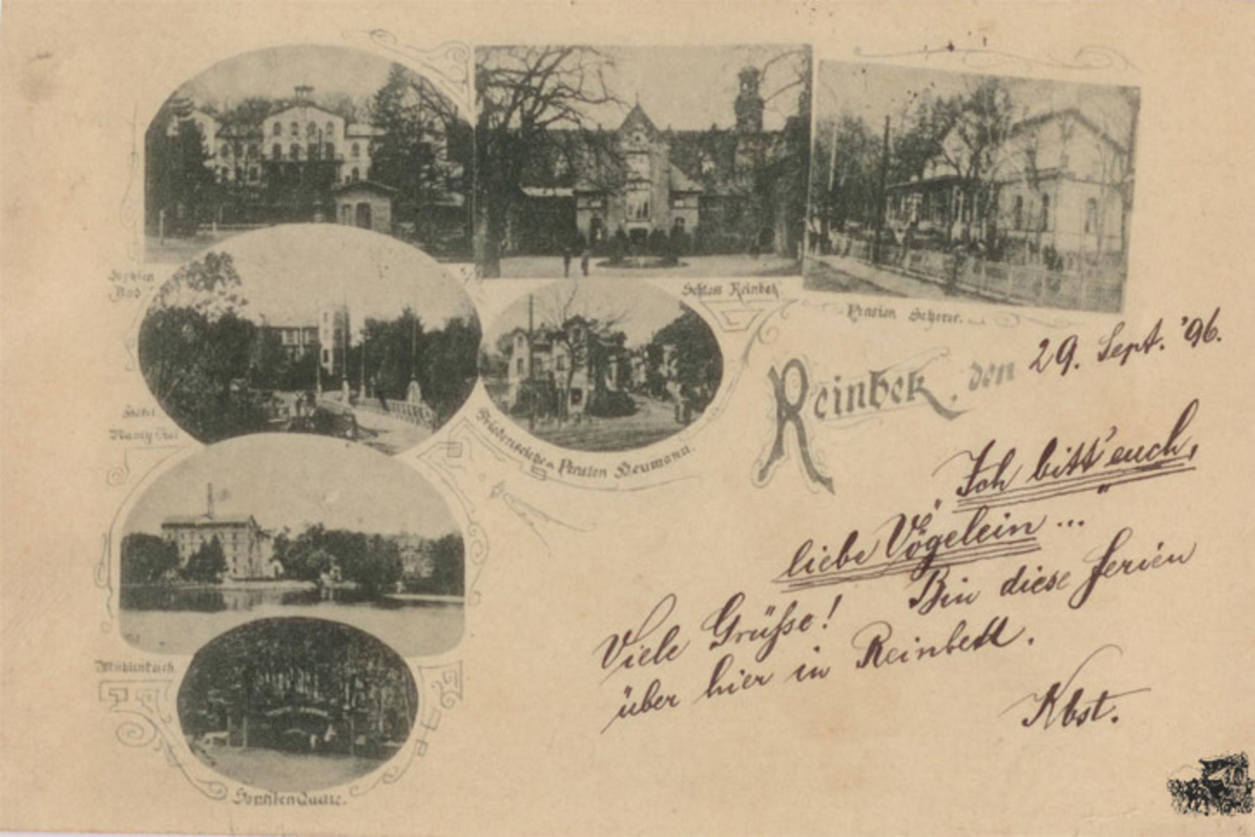 Sophien
Bad.
Schloss Reinbek
Pension Scherer.
Hotel
Friedenseiche u. Pension Neumann.
Mühlenteich
Sophien Quelle.
Reinbek, den 29. Sept. '96.
„Ich bitt' euch,
liebe Vögelein ..."
Viele Grüße! Bin diese Ferien
über hier in Reinbek.
Kbst.